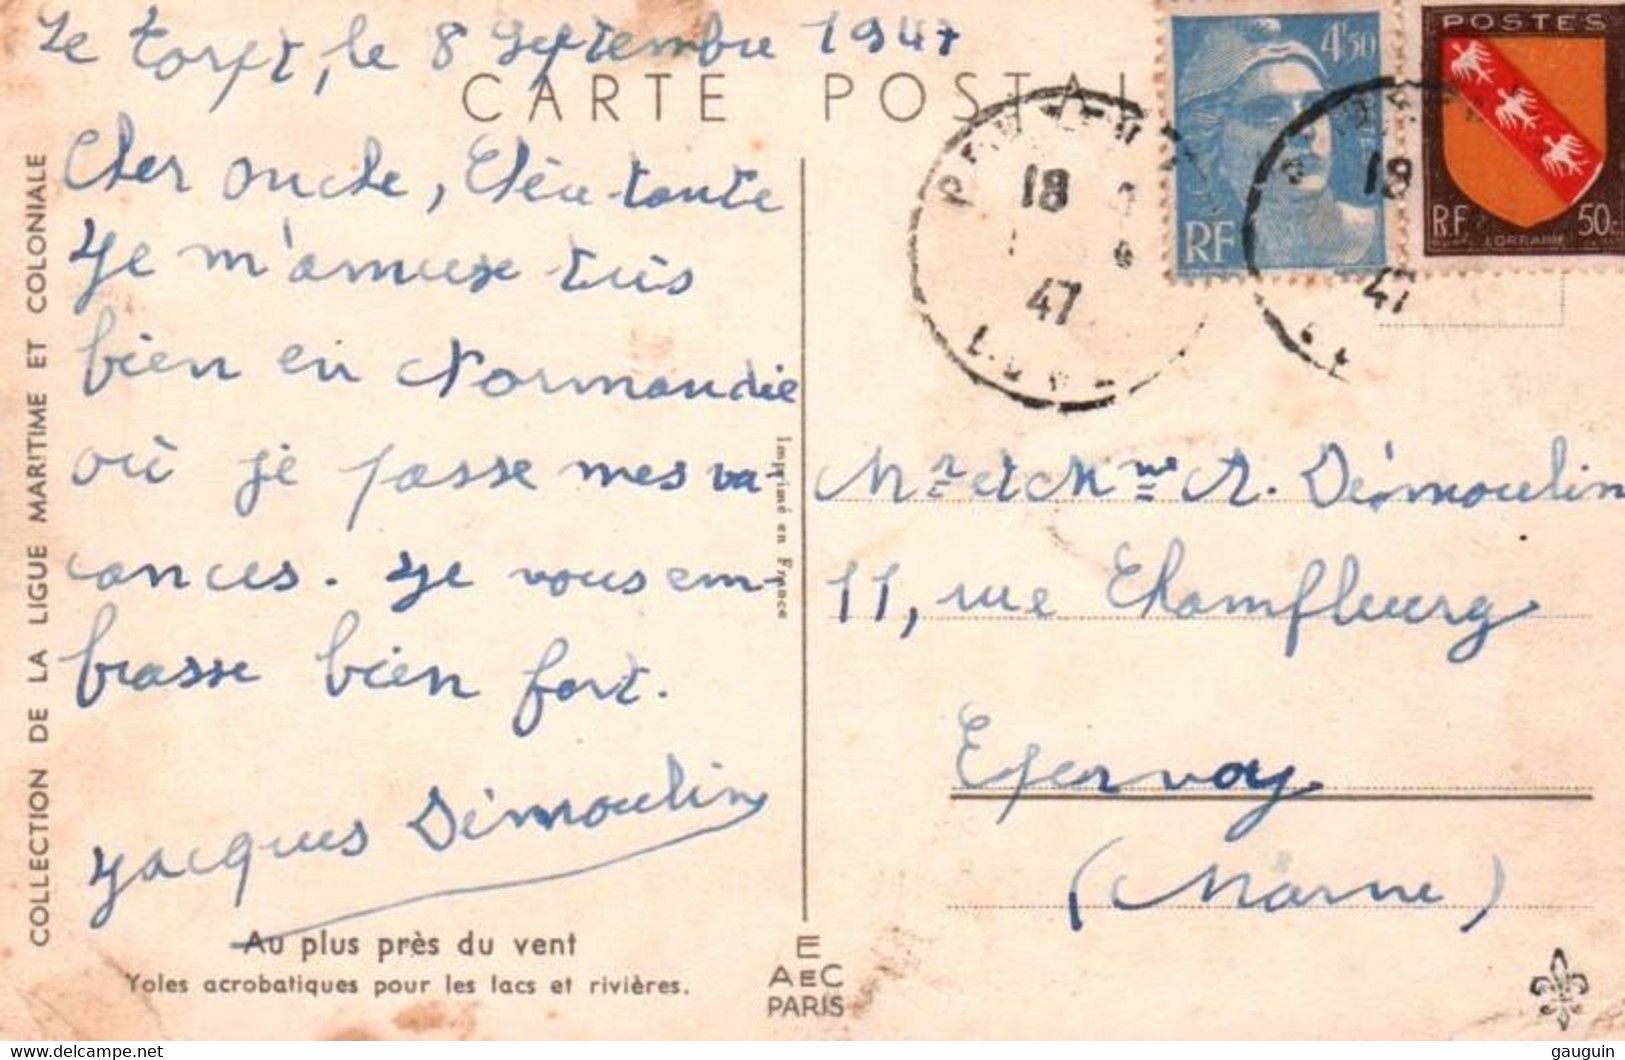 Le Torpt, le 8 Septembre 1947
CARTE POSTAL
Cher oncle, Chère tante
Je m'amuse très
bien en Normandie
où je passe mes va-
cances. Je vous em-
brasse bien fort.
Jacques Démoulin
Au plus près du vent
Yoles acrobatiques pour les lacs et rivières.
COLLECTION DE LA LIGUE MARITIME ET COLONIALE
Imprimé en France
E
AEC
PARIS
4F50
RF
POSTES
RF
50c
LORRAINE
18
47
18
47
Mr et Mme A. Démoulin
11, rue Chamfleurg
Epernay
(Marne)
gauguin